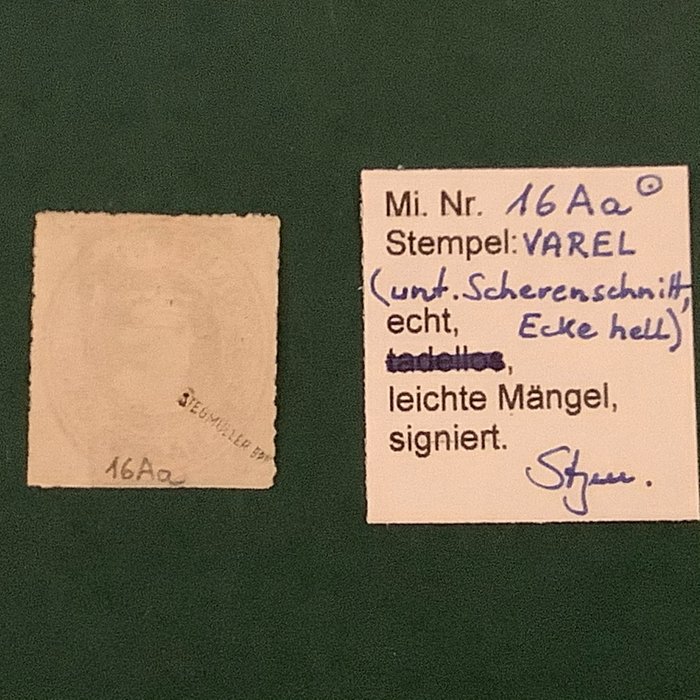 STEGMÜLLER BPP
16Aa
Mi. Nr. 16Aa ⊙
Stempel: VAREL
(unt. Scherenschnitt,
echt, Ecke hell)
tadellos,
leichte Mängel,
signiert.